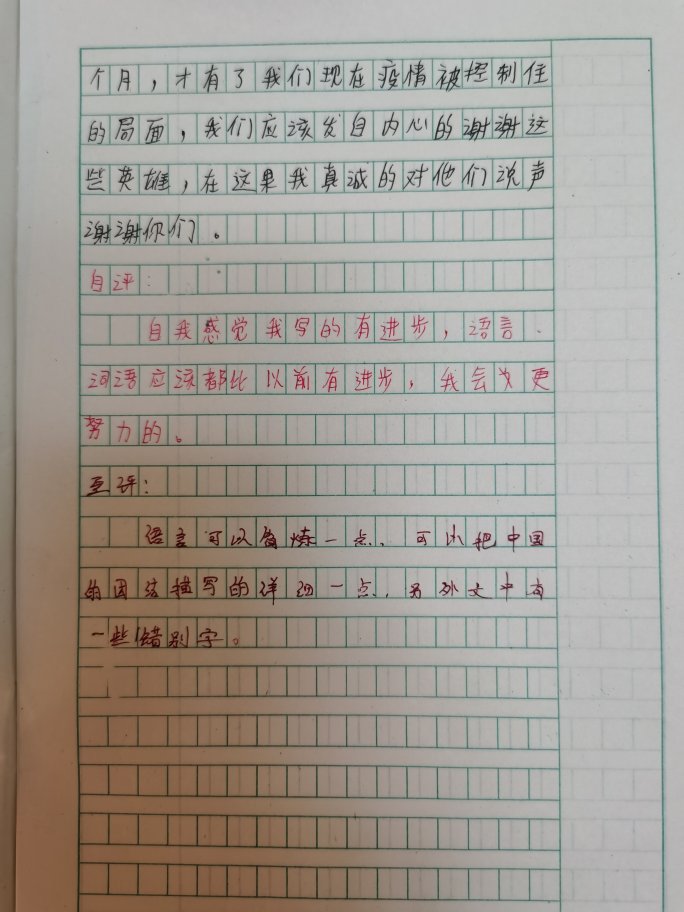 个月，才有了我们现在疫情被控制住
的局面，我们应该发自内心的谢谢这
些英雄，在这里我真诚的对他们说声
谢谢你们。
自评：
自我感觉我写的有进步，语言、
词语应该都比以前有进步，我会更
努力的。
互评：
语言可以精炼一点，可以把中国
的团结描写的详细一点，另外文中有
一些错别字。